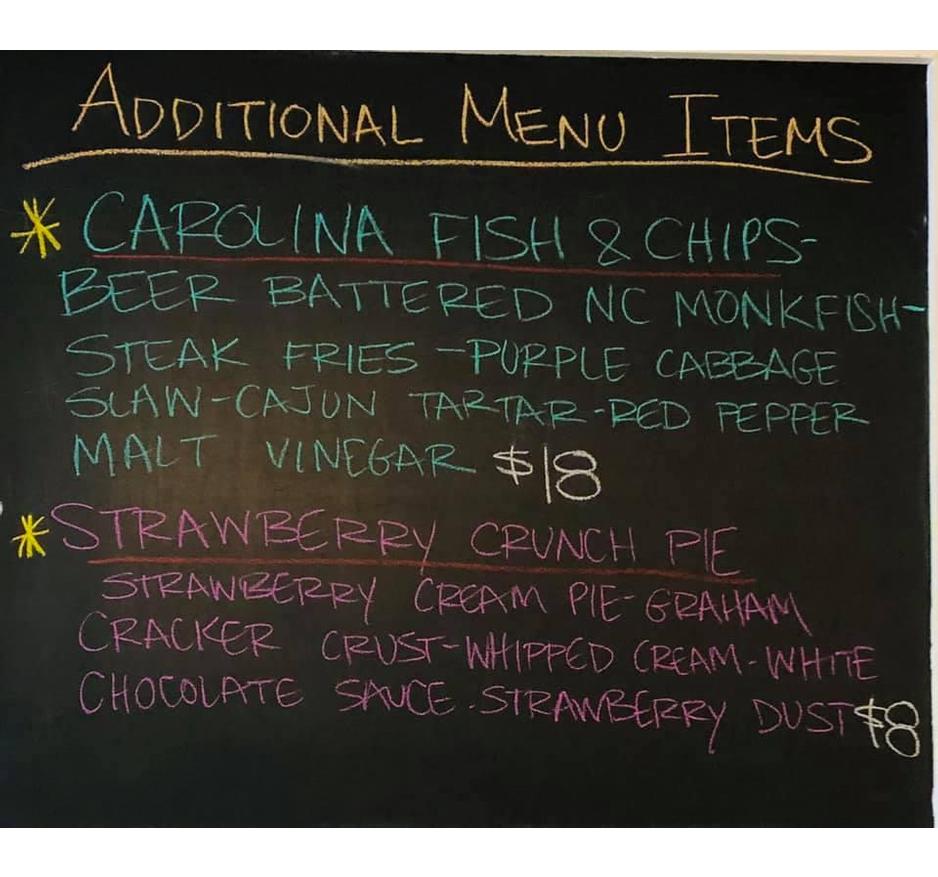 ADDITIONAL MENU ITEMS
* CAROLINA FISH & CHIPS-
BEER BATTERED NC MONKFISH-
STEAK FRIES - PURPLE CABBAGE
SLAW-CAJUN TARTAR-RED PEPPER
MALT VINEGAR $18
* STRAWBERRY CRUNCH PIE
STRAWBERRY CREAM PIE-GRAHAM
CRACKER CRUST-WHIPPED CREAM-WHITE
CHOCOLATE SAUCE-STRAWBERRY DUST $8